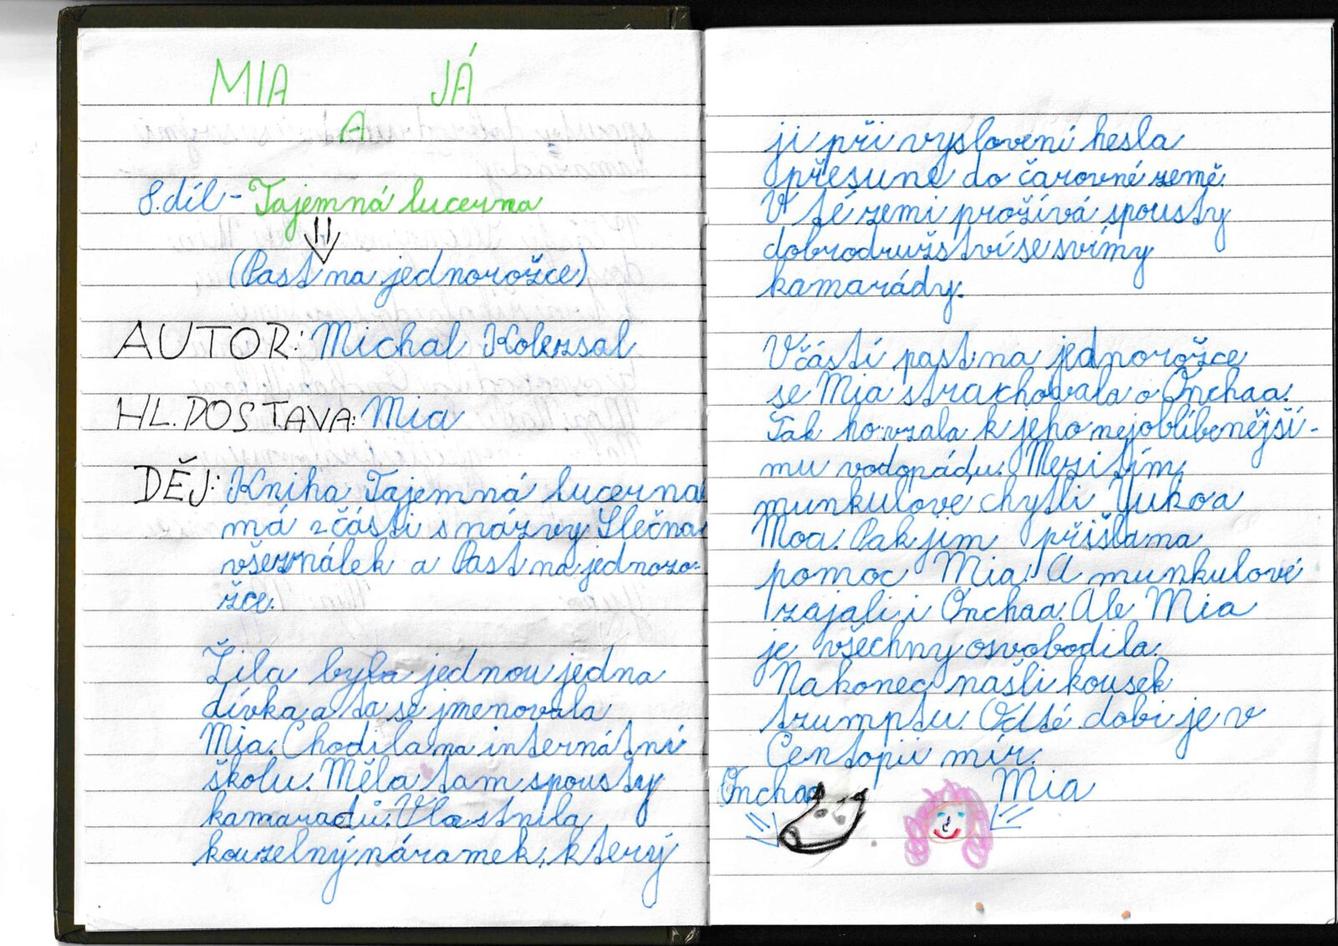 MIA JÁ
A
8. díl - Tajemná lucerna
(Past na jednorožce)
AUTOR: Michal Kolezsal
HL. DOSTAVA: Mia
DĚJ: Kniha Tajemná lucerna
má 2 části s názvy Slečna
všeználek a Past na jednoro-
žce.
Žila byla jednou jedna
dívka a ta se jmenovala
Mia. Chodila na internátní
školu. Měla tam spousty
kamaradů. Vlastnila
kouzelný náramek, který
ji při vyslovení hesla
přesune do čarovné země.
V té zemi prožívá spousty
dobrodružství se svímy
kamarády.
V části past na jednorožce
se Mia strachovala o Onchaa.
Tak ho vzala k jeho nejoblíbenější-
mu vodopádu. Mezitím
munkulove chytli Yuko a
Moa. Pak jim přišla na
pomoc Mia. A munkulové
zajali i Onchaa. Ale Mia
je všechny osvobodila.
Nakonec našli kousek
trumptu. Od té dobi je v
Centopii mír.
Onchao Mia